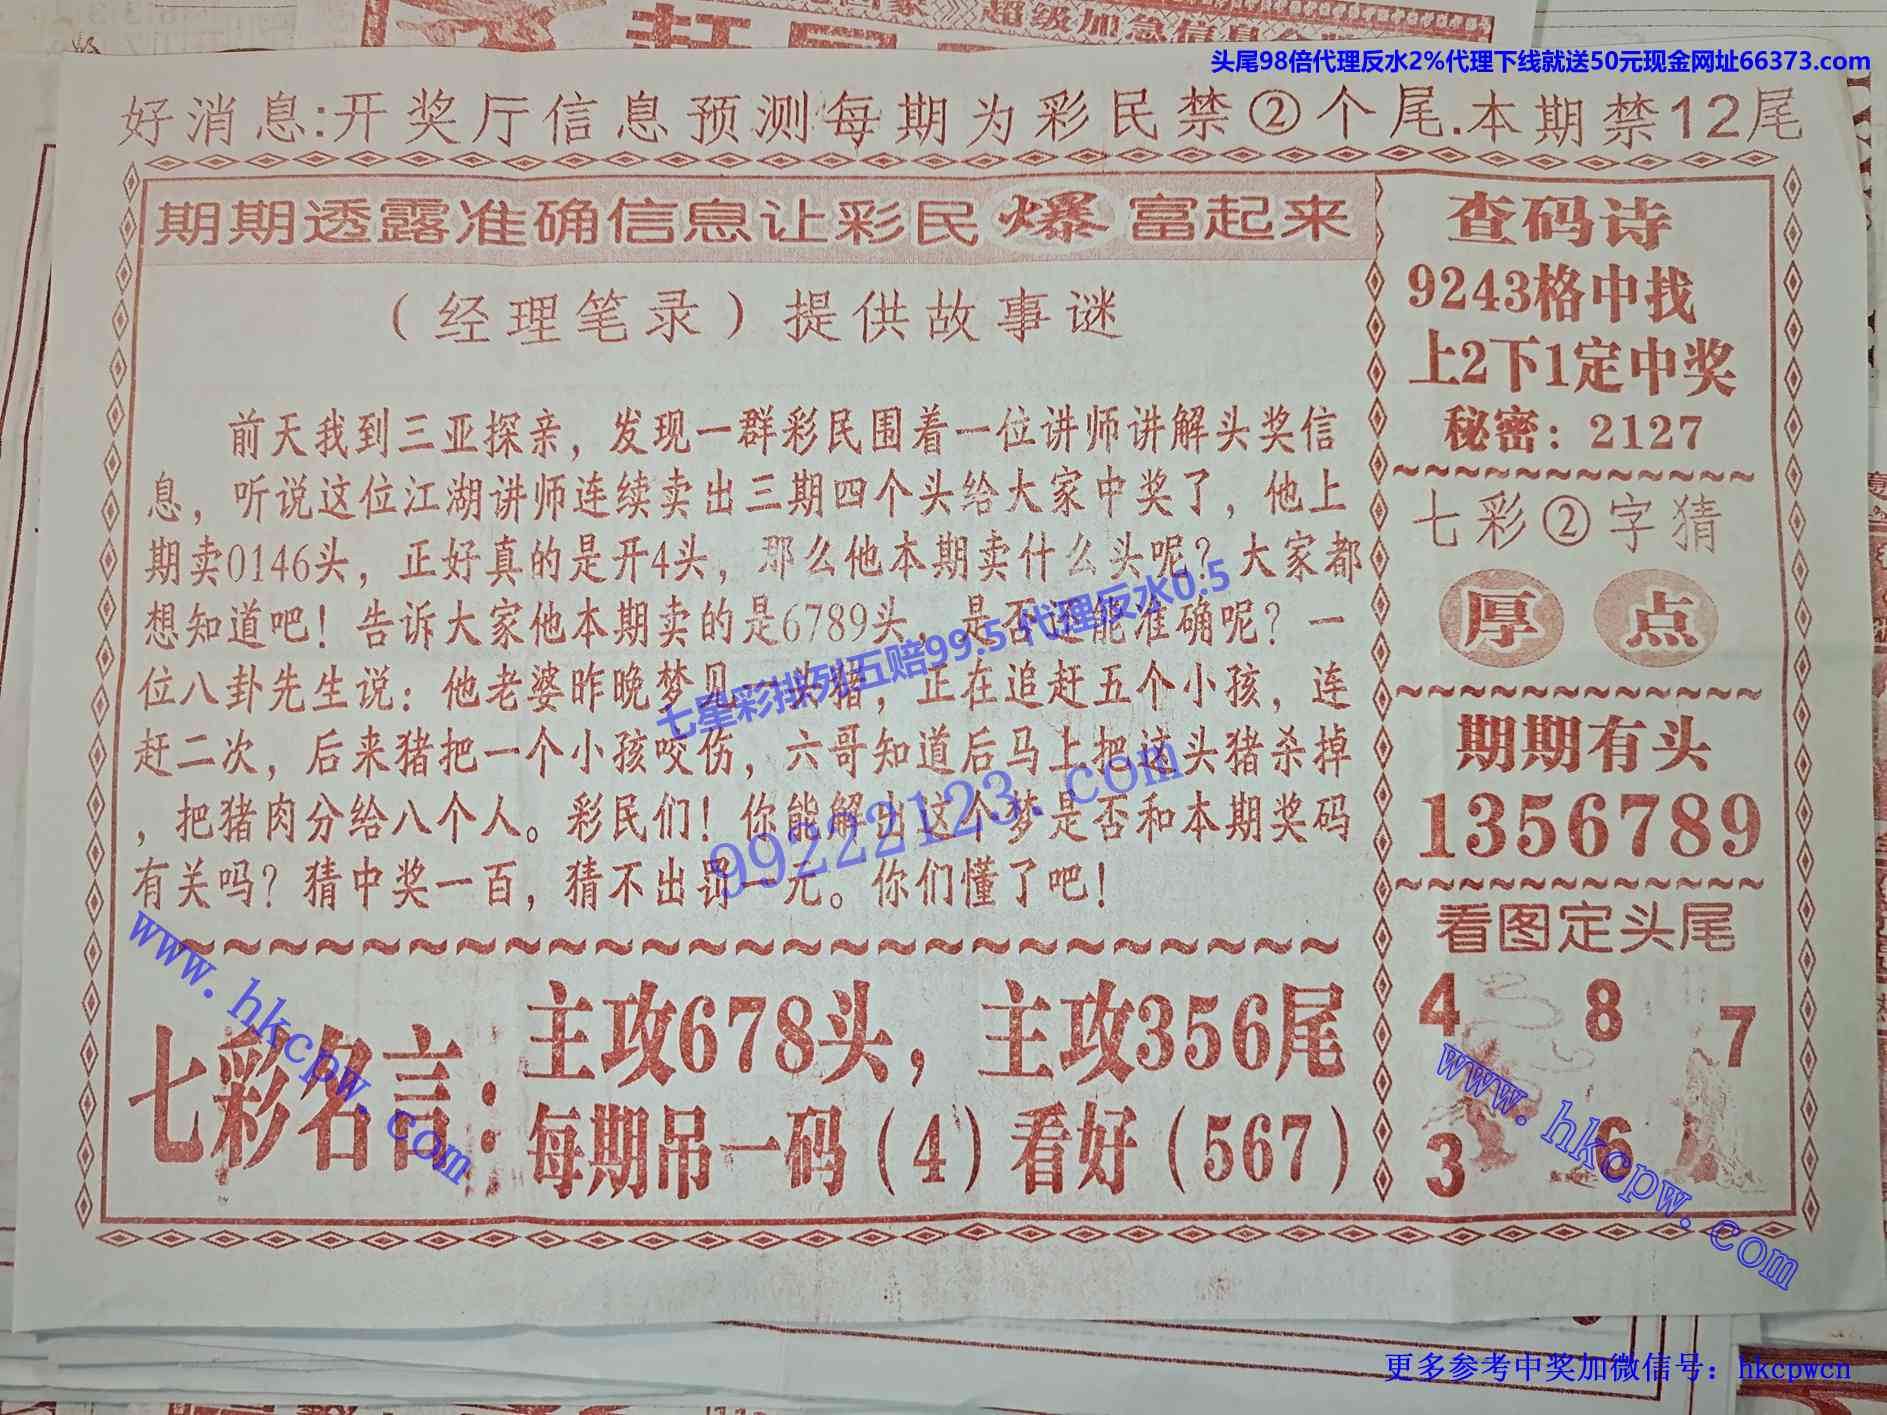 超级加急信息
头尾98倍代理反水2%代理下线就送50元现金网址66373.com
好消息:开奖厅信息预测每期为彩民禁②个尾.本期禁12尾
期期透露准确信息让彩民爆富起来
（经理笔录）提供故事谜
前天我到三亚探亲，发现一群彩民围着一位讲师讲解头奖信
息，听说这位江湖讲师连续卖出三期四个头给大家中奖了，他上
期卖0146头，正好真的是开4头，那么他本期卖什么头呢？大家都
想知道吧！告诉大家他本期卖的是6789头，是否还能准确呢？一
位八卦先生说：他老婆昨晚梦见一头猪，正在追赶五个小孩，连
赶二次，后来猪把一个小孩咬伤，六哥知道后马上把这头猪杀掉
，把猪肉分给八个人。彩民们！你能解出这个梦是否和本期奖码
有关吗？猜中奖一百，猜不出罚一元。你们懂了吧！
七星彩排列五赔99.5代理反水0.5
99222123.com
七彩名言：
主攻678头，主攻356尾
每期吊一码（4）看好（567）
www.hkcpw.com
查码诗
9243格中找
上2下1定中奖
秘密：2127
七彩②字猜
厚 点
期期有头
1356789
看图定头尾
4 8 7
3 6
www.hkcpw.com
更多参考中奖加微信号：hkcpwcn